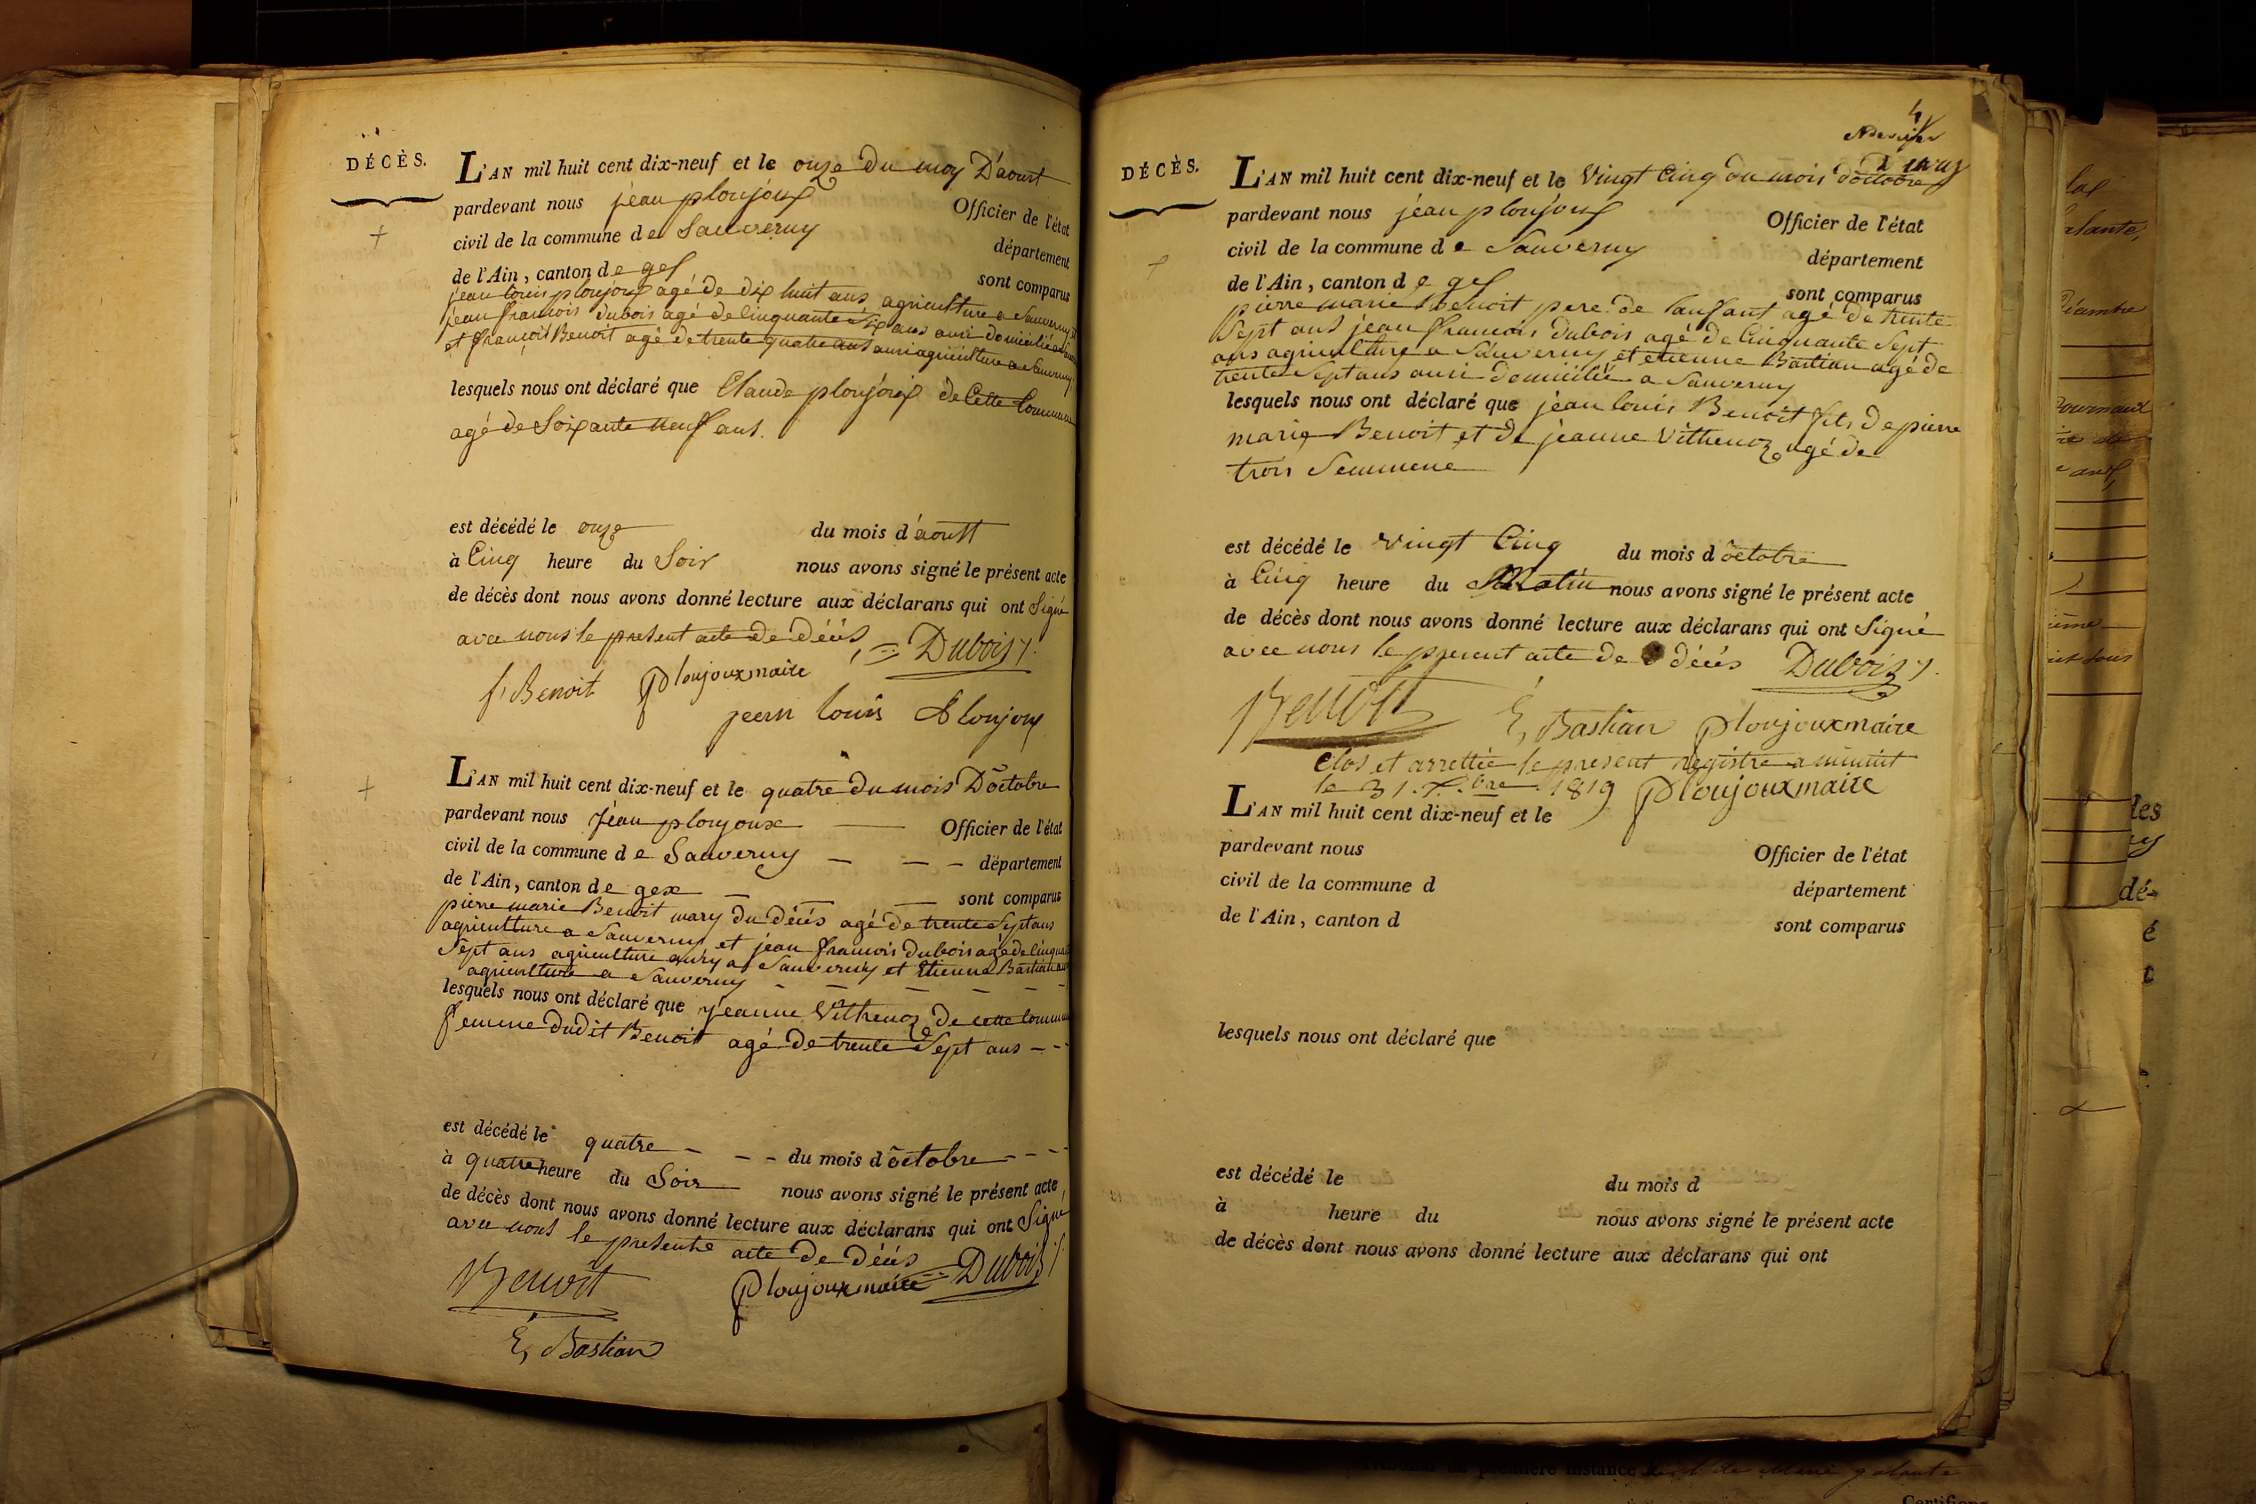 DÉCÈS.
L'AN mil huit cent dix-neuf et le onze du moy D'aoust
pardevant nous jean ploujoux Officier de l'état
civil de la commune de Sauverny département
de l'Ain, canton de gex sont comparus
jean louis ploujoux agé de dix huit ans agriculture a Sauverny
jean francois dubois agé de Cinquante Six ans aussi domicilié a
et françois Benoit agé de trente quatre ans aussi agriculture a Sauverny
lesquels nous ont déclaré que Claude ploujoux de Cette Commune
agé de Soixante neuf ans.
est décédé le onze du mois d'aoust
à Cinq heure du Soir nous avons signé le présent acte
de décès dont nous avons donné lecture aux déclarans qui ont Signé
avec nous le present acte de décès Dubois
f. Benoit Ploujoux maire
jean louis Ploujoux
L'AN mil huit cent dix-neuf et le quatre du mois D'octobre
pardevant nous jean ploujoux Officier de l'état
civil de la commune de Sauverny département
de l'Ain, canton de gex sont comparus
pierre marie Benoit mary du décés agé de trente Sept ans
agriculture a Sauverny et jean francois Dubois agé de Cinquante
Sept ans agriculture a Sauverny et Etienne Bastian
agriculture a Sauverny
lesquels nous ont déclaré que jeanne Vithenoz de cette Commune
femme dudit Benoit agé de trente Sept ans
est décédé le quatre du mois d'octobre
à quatre heure du Soir nous avons signé le présent acte
de décès dont nous avons donné lecture aux déclarans qui ont Signé
avec nous le presente acte de décès
Benoit Ploujoux maire Dubois
E, Bastian
4
DÉCÈS.
L'AN mil huit cent dix-neuf et le Vingt Cinq du mois d'octobre
pardevant nous jean ploujoux Officier de l'état
civil de la commune de Sauverny département
de l'Ain, canton de gex sont comparus
pierre marie Benoit pere de lanfant agé de trente
Sept ans jean francois Dubois agé de Cinquante Sept
ans agriculture a Sauverny et etienne Bastian agé de
trente Sept ans aussi domicilié a Sauverny
lesquels nous ont déclaré que jean louis Benoit fils de pierre
marie Benoit et de jeanne Vithenoz agé de
trois Semmene
est décédé le Vingt Cinq du mois d'octobre
à Cinq heure du Matin nous avons signé le présent acte
de décès dont nous avons donné lecture aux déclarans qui ont Signé
avec nous le present acte de décés Dubois
Benoit E, Bastian Ploujoux maire
Clos et arrettée le present registre a minuit
le 31 Xbre 1819 Ploujoux maire
L'AN mil huit cent dix-neuf et le
pardevant nous Officier de l'état
civil de la commune d département
de l'Ain, canton d sont comparus
lesquels nous ont déclaré que
est décédé le du mois d
à heure du nous avons signé le présent acte
de décès dont nous avons donné lecture aux déclarans qui ont